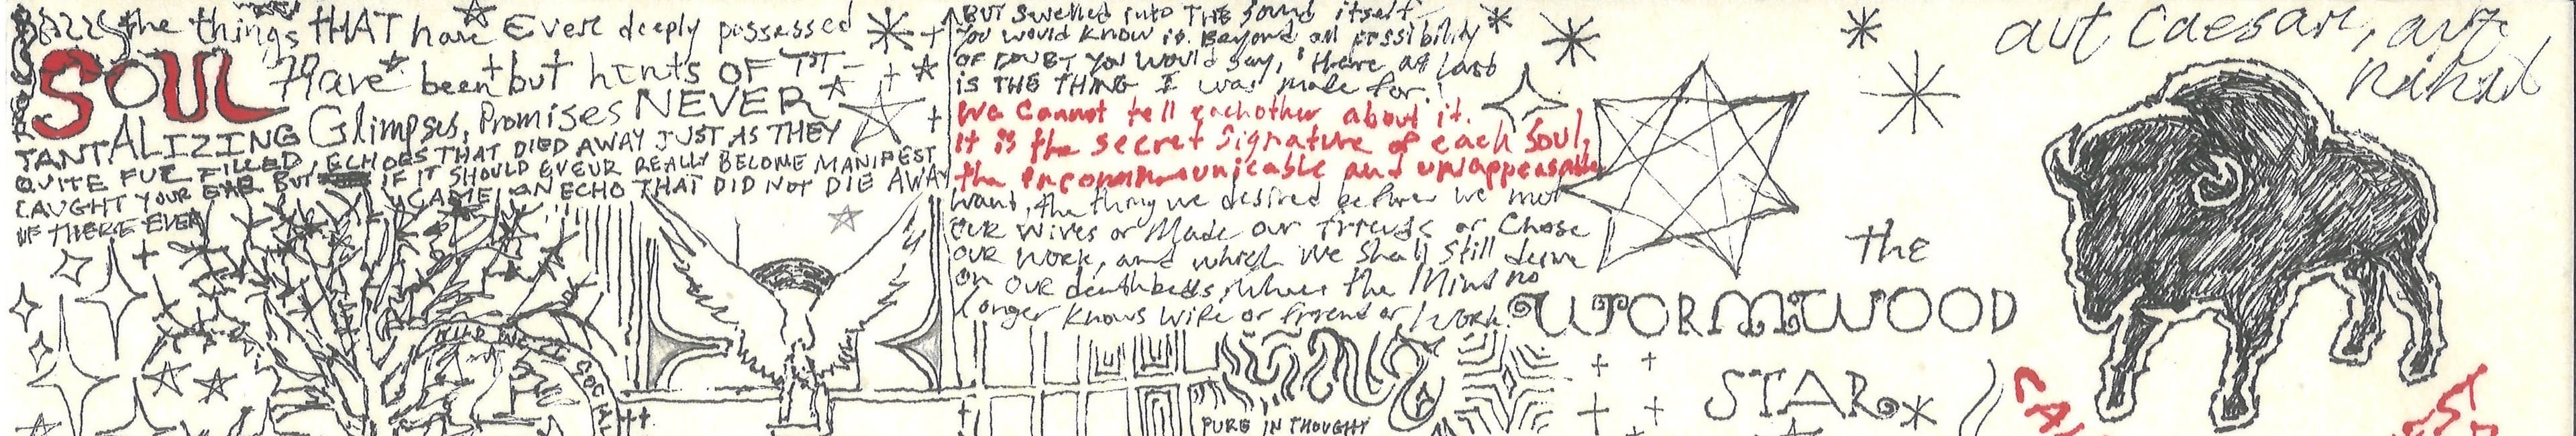 the things THAT have Ever deeply possessed
SOUL Have been but hints OF IT -
TANTALIZING Glimpses, Promises NEVER
QUITE FUL FILLED, ECHOES THAT DIED AWAY JUST AS THEY
CAUGHT YOUR EAR BUT IF IT SHOULD EVEUR REALLY BECOME MANIFEST
IF THERE EVER CAME AN ECHO THAT DID NOT DIE AWAY
BUT Swelled into THE Sound itself
You would know it. Beyond all possibility
OF DOUBT YOU Would say, "Here at last
is THE THING I was made for."
We Cannot tell eachother about it.
It is the secret Signature of each Soul,
the incommunicable and unappeasable
want, the thing we desired before we met
OUR Wives or Made our friends or Chose
OUR Work, and which We Shall Still desire
on OUR deathbeds, When the Mind no
longer knows Wife or friend or Work.
PURE IN THOUGHT
aut Caesar, aut
nihil
the
WORMWOOD
STAR